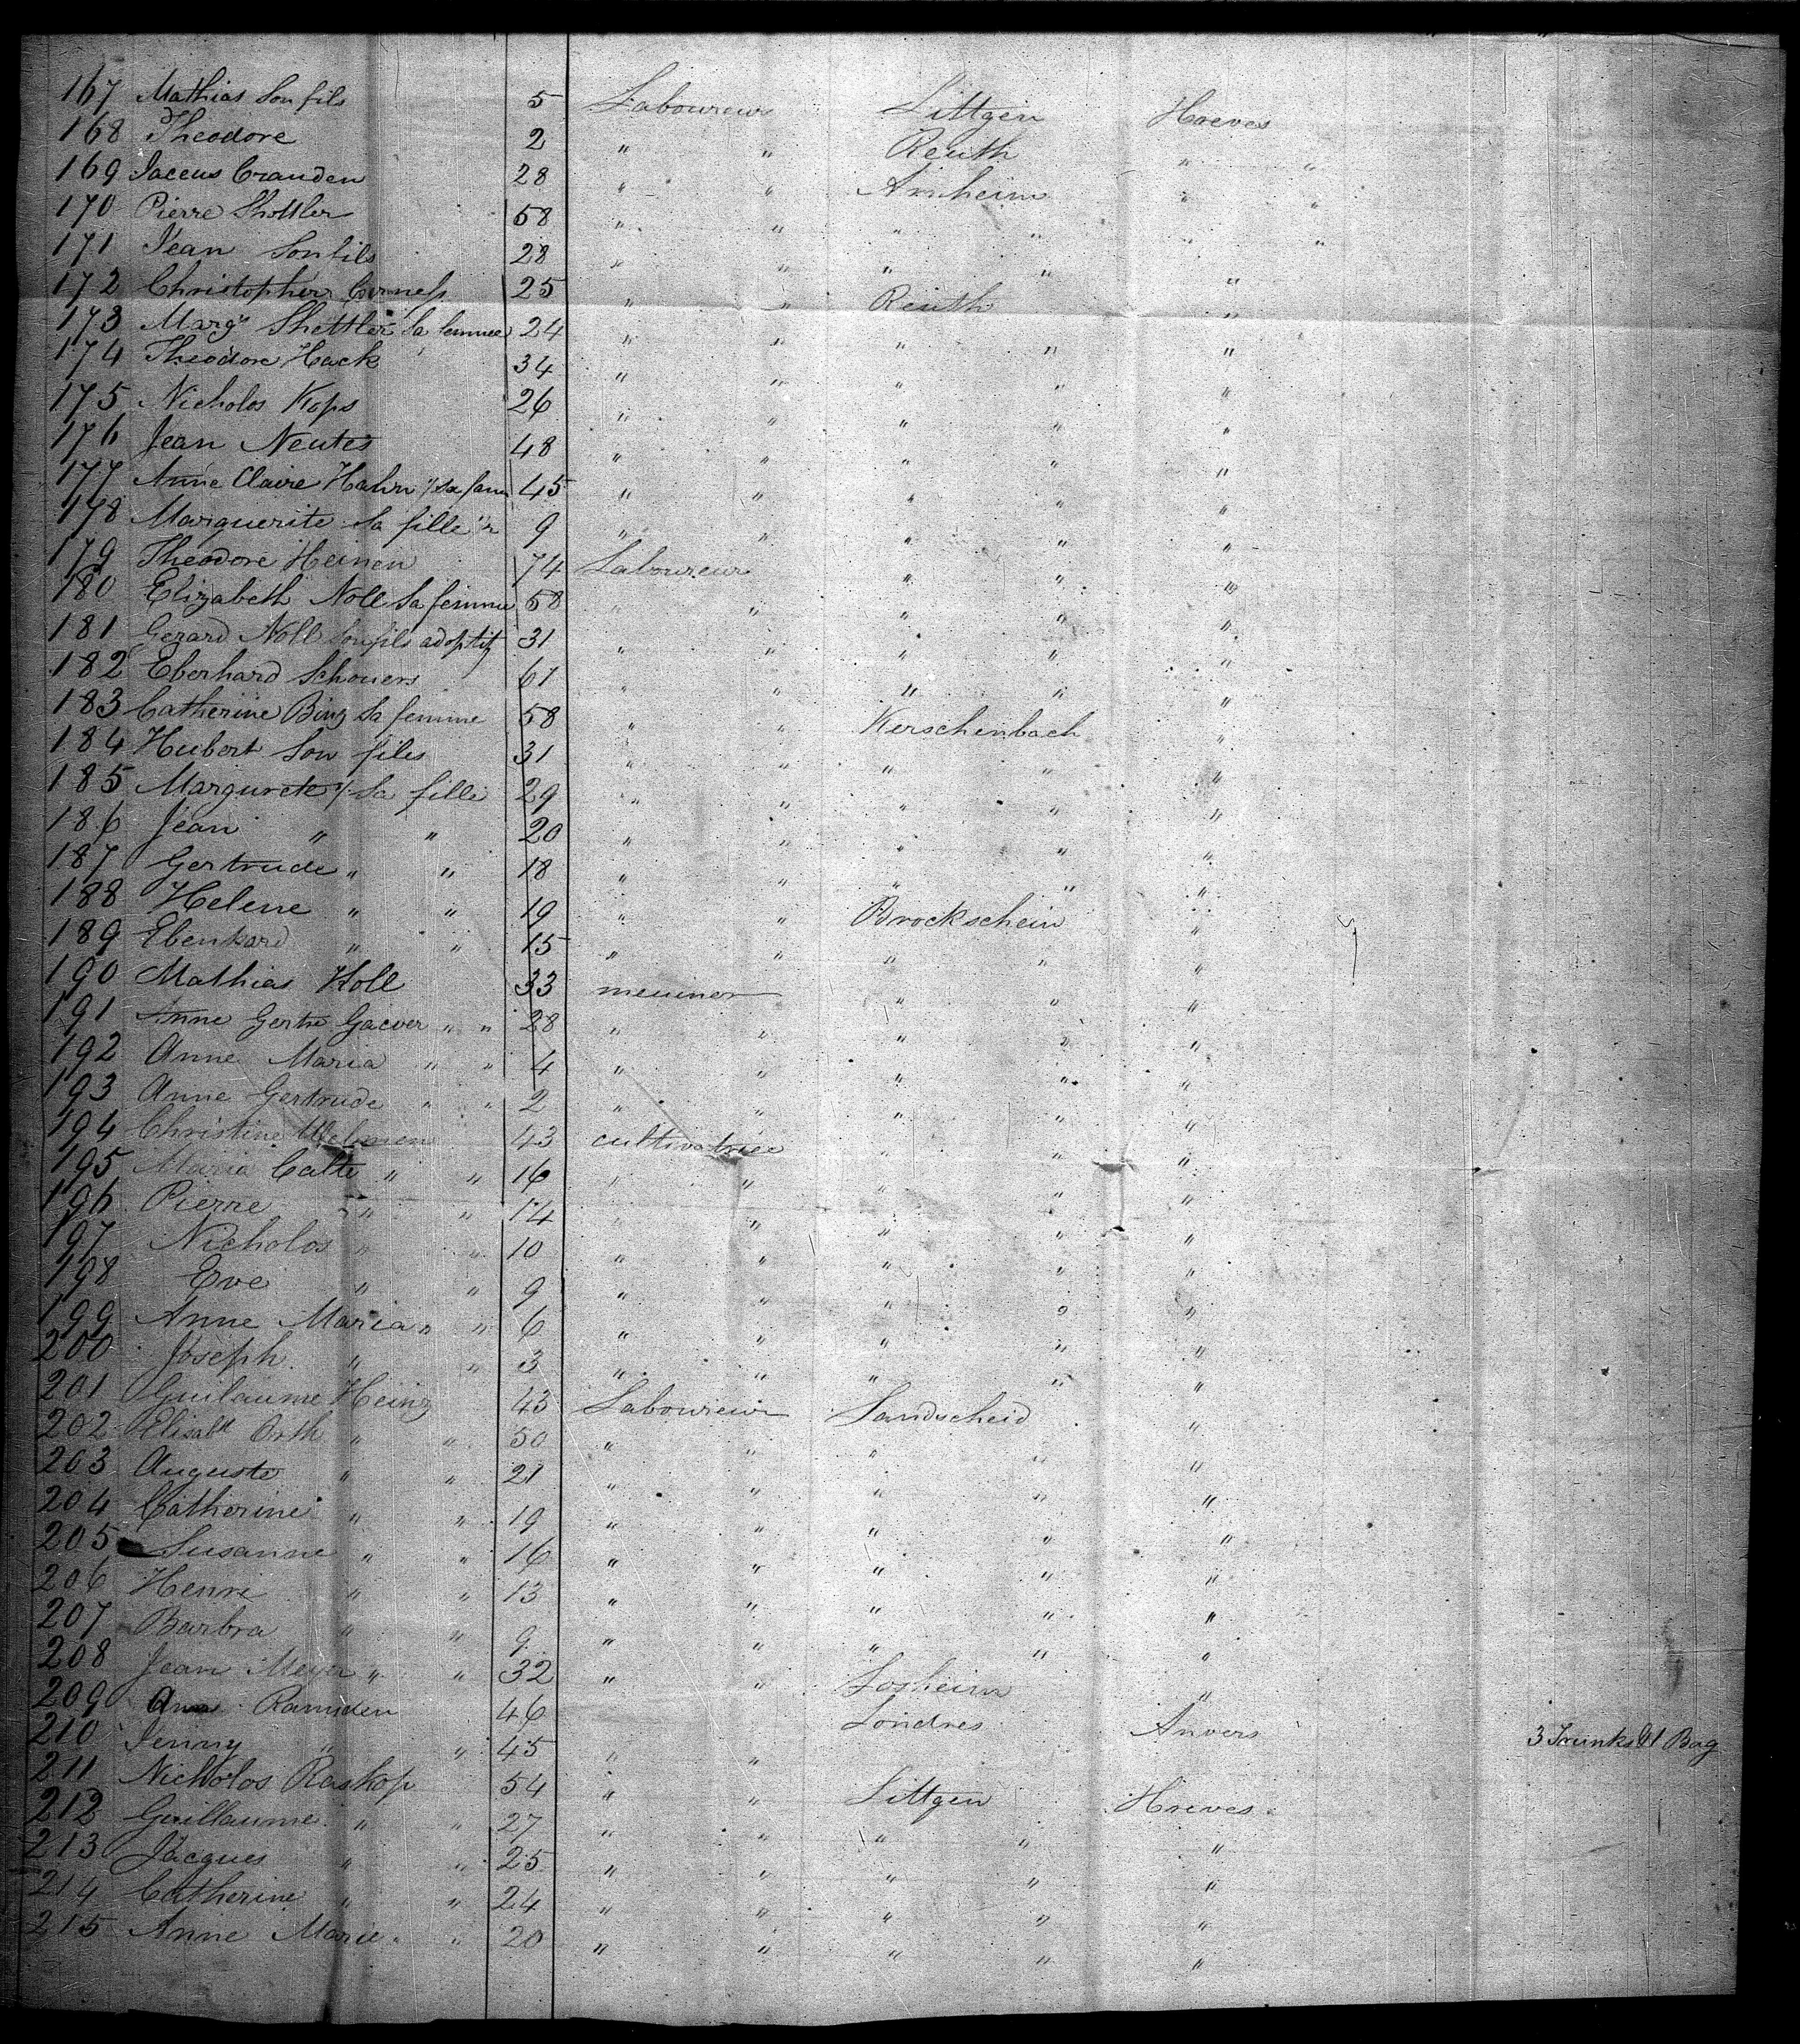 167 Mathias Son fils 5 Laboureur Littgen Hreves
168 Theodore 2 " " Reuth " "
169 Jaceus Cranden 28 " " Arnheim " "
170 Pierre Shottler 58 " " " " " "
171 Jean Son fils 28 " " " " "
172 Christopher 25 " " Reuth "
173 Margt Shettler Sa femme 24 " " " " "
174 Theodore Hack 34 " " " " "
175 Nicholos Kops 26 " " " " "
176 Jean Neutes 48 " " " " "
177 Anne Claire Hahn " sa fam 45 " " " " "
178 Marguerite sa fille " 9 " " " " "
179 Theodore Heinen 74 Laboureur " " "
180 Elizabeth Noll Sa femme 58 " " " " "
181 Gerard Noll Son fils adoptif 31 " " " " "
182 Eberhard Schouers 61 " " " " "
183 Catherine Binz Sa femme 58 " " Kerschenbach "
184 Hubert Son files 31 " " " " "
185 Margurete " Sa fille 29 " " " " "
186 Jean " " 20 " " " " "
187 Gertrude " " 18 " " " " "
188 Helene " " 19 " " Brockschein "
189 Ebenhard " " 15 " " " " "
190 Mathias Koll 33 meuiner " " "
191 Anne Gertr Gaever " " 28 " " " " "
192 Anne Maria " " 4 " " " " "
193 Anne Gertrude " " 2 " " " " "
194 Christine Welmen 43 cultivatrice " " "
195 Maria Calte " " 16 " " " " "
196 Pierre " " 14 " " " " "
197 Nicholos " " 10 " " " " "
198 Eve " " 9 " " " " "
199 Anne Maria " " 6 " " " " "
200 Joseph " " 3 " " " " "
201 Guilaume Heinz 43 Laboureur Landscheid "
202 Elisabt Orth " " 50 " " " " "
203 Auguste " " 21 " " " " "
204 Catherine " " 19 " " " " "
205 Susanne " " 16 " " " " "
206 Henri " " 13 " " " " "
207 Barbra " " 9 " " " " "
208 Jean Meyer " " 32 " " Losheim "
209 Ramsden 46 Londres Anvers 3 Trunks & 1 Bag
210 Jenny " " 45 " "
211 Nicholos Raskop 54 " " Littgen Hreves
212 Guillaume " " 27 " " " " "
213 Jacques " " 25 " " " " "
214 Catherine " " 24 " " " " "
215 Anne Marie " 20 " " " " "